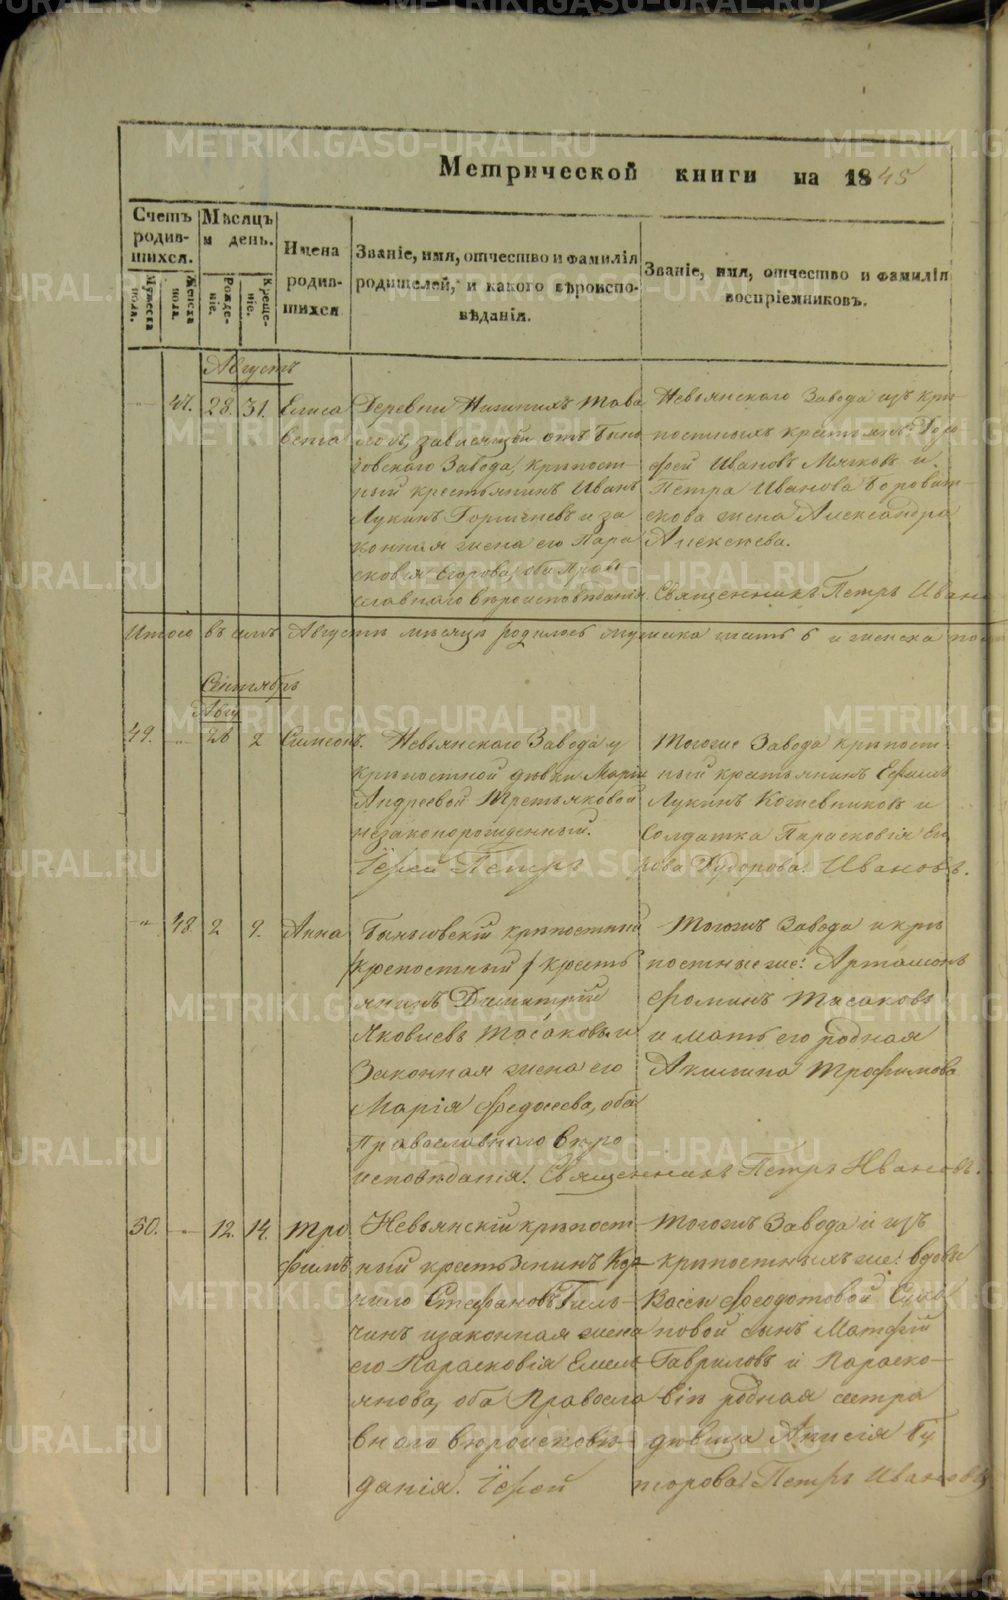 METRIKI.GASO-URAL.RU
Метрической книги на 1845
Счетъ родив-шихся.
Мужеска пола.
Женска пола.
Мѣсяцъ и день.
Рожде-ніе.
Креще-ніе.
Имена родив-шихся
Званіе, имя, отчество и фамилія
родителей, и какого вѣроиспо-
вѣданія.
Званіе, имя, отчество и фамилія
воспріемниковъ.
Августъ
47. 28. 31. Елиса
вета
Деревни Нижнихъ Тава
логъ, зависящей отъ Бынь
говскаго Завода, крѣпост-
ный крестьянинъ Иванъ
Лукинъ и за
конная жена его Пара
сковія Егорова, оба Право
славнаго вѣроисповѣданія.
Невьянскаго Завода изъ крѣ-
постныхъ крестьянъ:
фей Ивановъ Мягковъ и
Петра Иванова
скова жена Александра
Алексѣева.
Священникъ Петръ Ивано
Итого въ семъ Августѣ мѣсяцѣ родилось мужска 6 и женска по
Сентябрь
Авгу
49. „ 26 2 Симеонъ.
Невьянскаго Завода у
крѣпостной дѣвки Маріи
Андреевой Третьяковой
незаконорожденный.
Іерей Петръ
Тогоже Завода крѣпост-
ный крестьянинъ Ефимъ
Лукинъ Кожевниковъ и
Солдатка Парасковія Его
рова Ѳедорова. Ивановъ.
„ 48. 2 9. Анна
Быньговскій крѣпостный
/крепостный/ кресть
янинъ Димитрій
Яковлевъ Тосаковъ и
Законная жена его
Марія Федосеева, оба
Православнаго вѣро
исповѣданія. Священникъ Петръ Ивановъ.
Тогожъ Завода и крѣ
постные же: Артамонъ
Фоминъ Тосаковъ
и мать его родная
Акилина Трофимова
50. „ 12. 14. Тро
фимъ
Невьянскій крѣпост
ный крестьянинъ Кор-
нило Стефановъ Гиль-
чинъ и законная жена
его Парасковія Емель
янова, оба Правосла
внаго вѣроисповѣ-
данія. Іерей
Тогожъ Завода и изъ
крѣпостныхъ же: вдовы
Васеи Феодотовой
новой сынъ Матфій
Гавриловъ и Параско-
віи родная сестра
дѣвица Анисія
Петръ Ивановъ